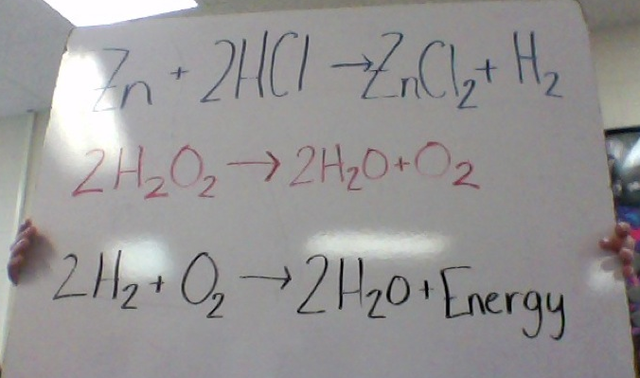 Zn + 2HCl → ZnCl₂ + H₂
2H₂O₂ → 2H₂O + O₂
2H₂ + O₂ → 2H₂O + Energy